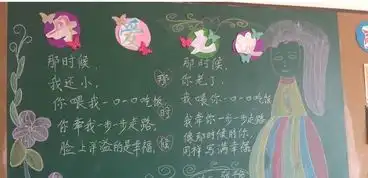 那时候，
我还小，
你喂我一口一口吃饭，
你牵我一步一步走路，
脸上洋溢的是幸福。
那
时
候
那时候，
你老了，
我喂你一口一口吃饭，
我牵你一步一步走路，
像那时候的你，
同样写满幸福。